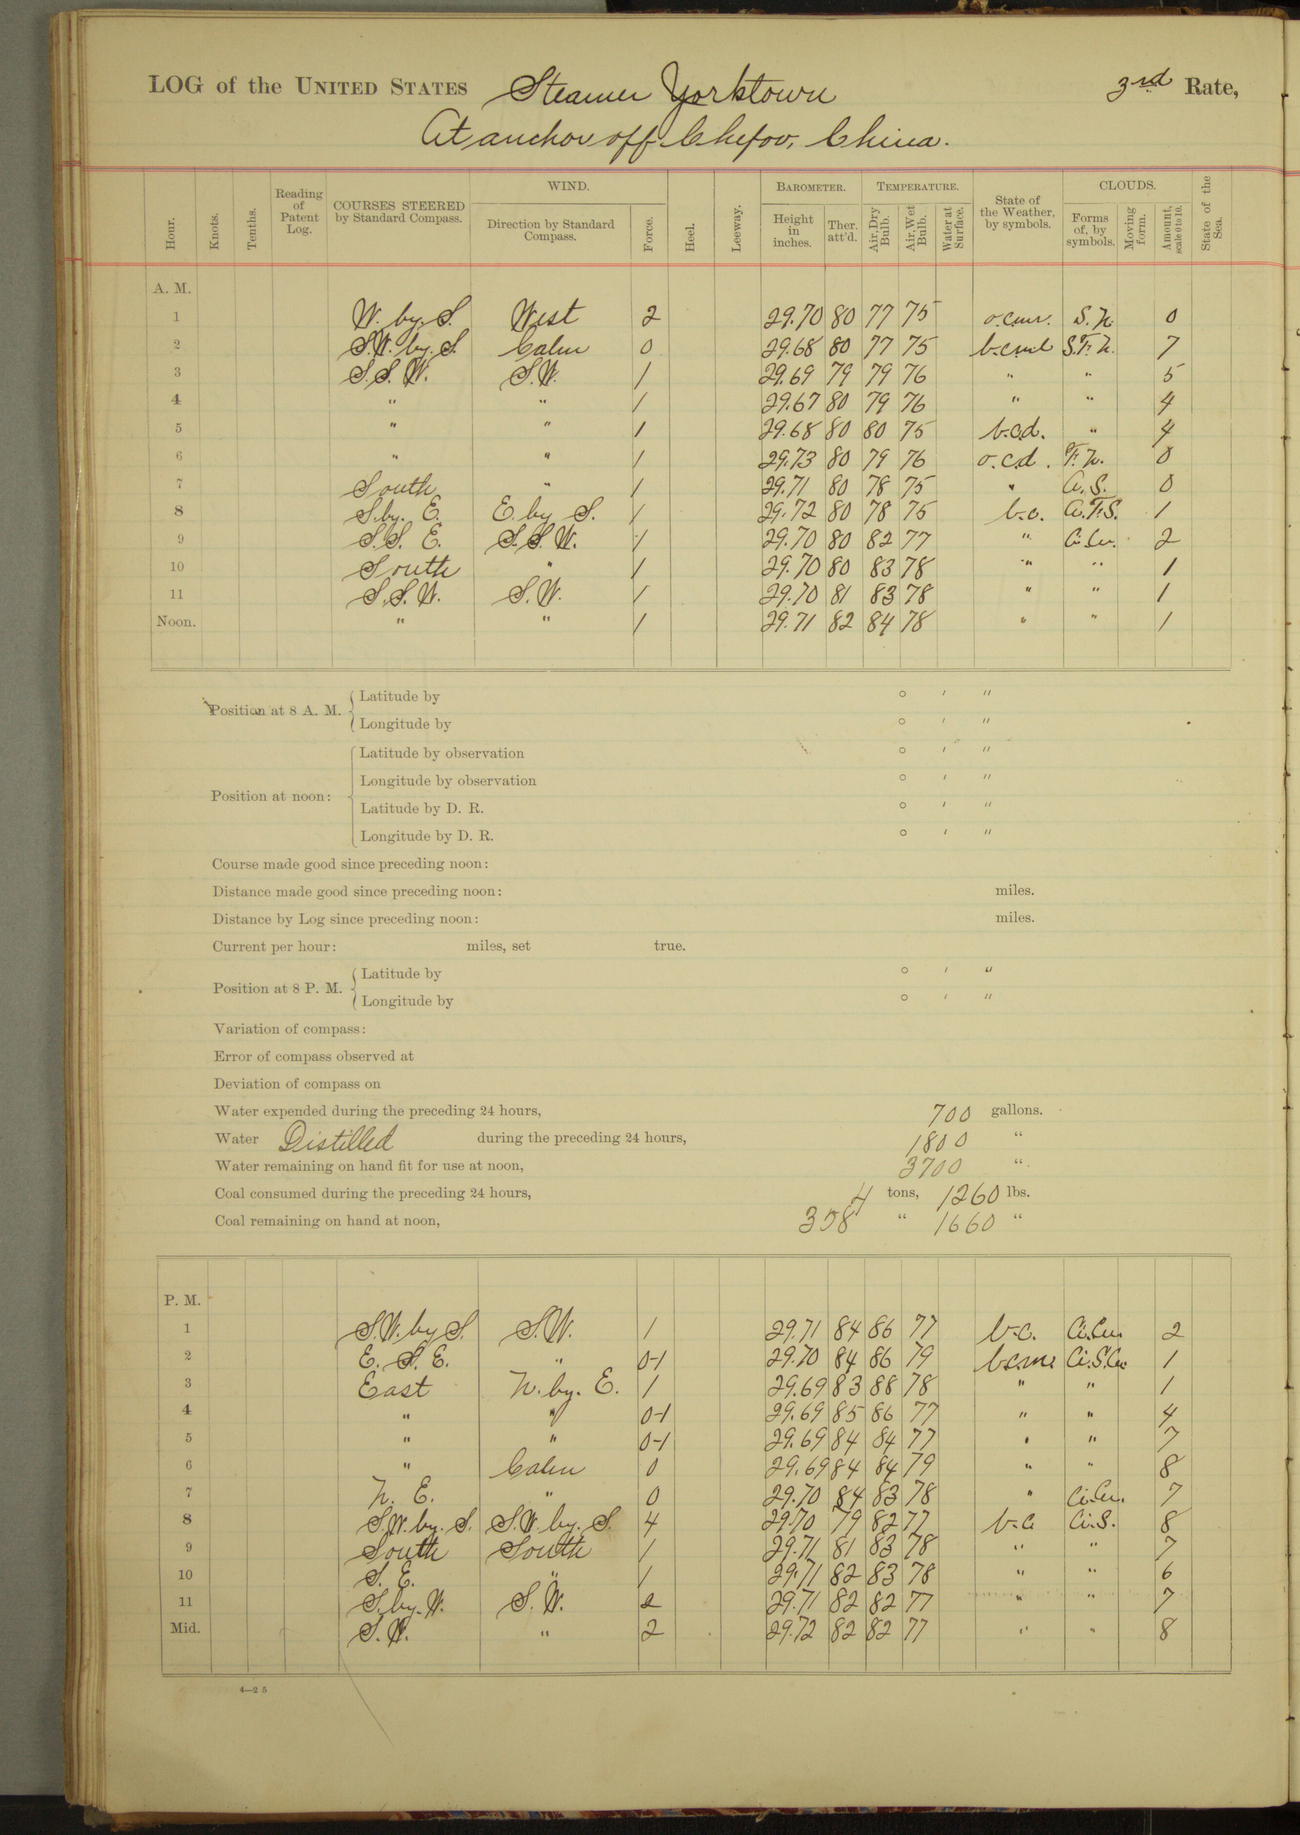 LOG of the UNITED STATES Steamer Yorktown 3rd Rate,
At anchor off Chefoo, China.
Hour. Knots. Tenths. Reading of Patent Log. COURSES STEERED by Standard Compass. WIND. Direction by Standard Compass. Force. Heel. Leeway. BAROMETER. Height in inches. Ther. att'd. TEMPERATURE. Air, Dry Bulb. Air, Wet Bulb. Water at Surface. State of the Weather, by symbols. CLOUDS. Forms of, by symbols. Moving form. Amount, scale 0 to 10. State of the Sea.
A. M.
1 W. by. S. West 2 29.70 80 77 75 S. N. 0
2 S.W. by. S. Calm 0 29.68 80 77 75 7
3 S.S.W. S.W. 1 29.69 79 79 76 " " 5
4 " " 1 29.67 80 79 76 " " 4
5 " " 1 29.68 80 80 75 b.c.d. " 4
6 " " 1 29.73 80 79 76 o.c.d. 0
7 South " 1 29.71 80 78 75 " 0
8 S. by. E. E. by S. 1 29.72 80 78 75 b.c. 1
9 S.S. E. S.S.W. 1 29.70 80 82 77 " Ci.Cu. 2
10 South " 1 29.70 80 83 78 " " 1
11 S.S.W. S.W. 1 29.70 81 83 78 " " 1
Noon. " " 1 29.71 82 84 78 " " 1
Position at 8 A. M. Latitude by ° ′ ″
Longitude by ° ′ ″
Position at noon: Latitude by observation ° ′ ″
Longitude by observation ° ′ ″
Latitude by D. R. ° ′ ″
Longitude by D. R. ° ′ ″
Course made good since preceding noon:
Distance made good since preceding noon: miles.
Distance by Log since preceding noon: miles.
Current per hour: miles, set true.
Position at 8 P. M. Latitude by ° ′ ″
Longitude by ° ′ ″
Variation of compass:
Error of compass observed at
Deviation of compass on
Water expended during the preceding 24 hours, 700 gallons.
Water Distilled during the preceding 24 hours, 1800 "
Water remaining on hand fit for use at noon, 3700 "
Coal consumed during the preceding 24 hours, 4 tons, 1260 lbs.
Coal remaining on hand at noon, 358 " 1660 "
P. M.
1 S.W. by S. S.W. 1 29.71 84 86 77 b.c. Ci.Cu. 2
2 E. S. E. " 0-1 29.70 84 86 79 b.c.m. Ci.S.Cu. 1
3 East N. by. E. 1 29.69 83 88 78 " " 1
4 " " 0-1 29.69 85 86 77 " " 4
5 " " 0-1 29.69 84 84 77 " " 7
6 " Calm 0 29.69 84 84 79 " " 8
7 N. E. " 0 29.70 84 83 78 " Ci.Cu. 7
8 S.W. by. S. S.W. by. S. 4 29.70 79 82 77 b.c. Ci.S. 8
9 South South 1 29.71 81 83 78 " " 7
10 S. E. " 1 29.71 82 83 78 " " 6
11 S. by. W. S.W. 2 29.71 82 82 77 " " 7
Mid. S.W. " 2 29.72 82 82 77 " " 8
4—25